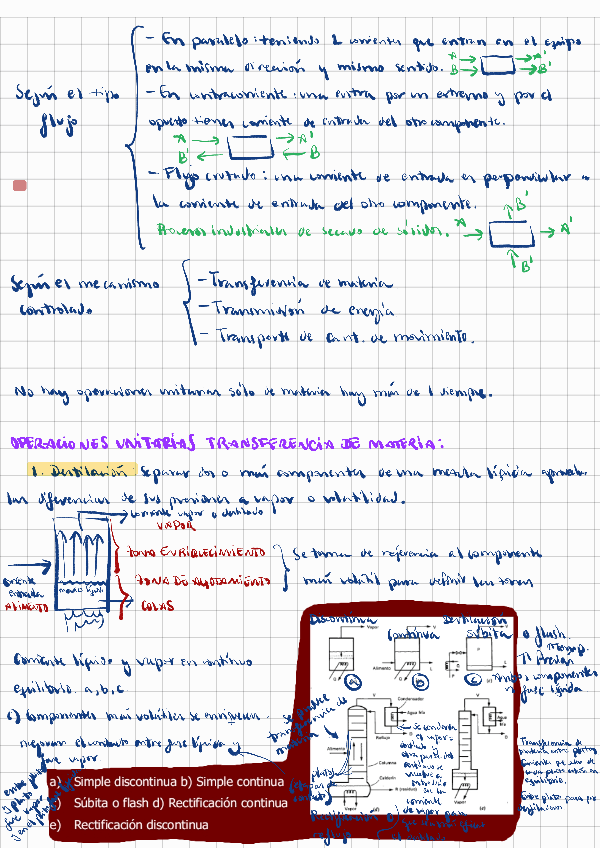 - En paralelo: teniendo 2 corrientes que entran en el equipo
en la misma dirección y mismo sentido.
A → → A'
B → → B'
Según el tipo
flujo
- En contracorriente: una entra por un extremo y por el
opuesto tienes corriente de entrada del otro componente.
A → → A'
B' ← ← B
- Flujo cruzado: una corriente de entrada es perpendicular a
la corriente de entrada del otro componente.
Procesos industriales de secado de sólidos.
A → → A'
↑ B'
↑ B'
Según el mecanismo
controlado
- Transferencia de materia
- Transmisión de energía
- Transporte de cant. de movimiento.
No hay operaciones unitarias sólo de materia hay más de 1 siempre.
OPERACIONES UNITARIAS TRANSFERENCIA DE MATERIA:
1. Destilación Separar dos o más componentes de una mezcla líquida
las diferencias de sus presiones a vapor o volatilidad.
corriente vapor o destilado
VAPOR
ZONA ENRIQUECIMIENTO
ZONA DE AGOTAMIENTO
COLAS
Se toma de referencia al componente
más volátil para definir las zonas
corriente
entrada
ALIMENTO
Corriente líquido y vapor en continuo
equilibrio. a, b, c
c) Componentes más volátiles se enriquecen.
mejoran el contacto entre fase líquida y
fase vapor
Discontinua
continua
Destilación
súbita o flash.
Vapor
Alimento
a
b
c
Ambos componentes
en fase líquida
se produce
transferencia de
materia
Condensador
Agua fría
Reflujo
Alimento
Columna
Calderín
R (residuo)
Vapor
Vapor
Agua
fría
(d)
(e)
Transferencia de
equilibrio.
a) Simple discontinua b) Simple continua
Súbita o flash d) Rectificación continua
e) Rectificación discontinua